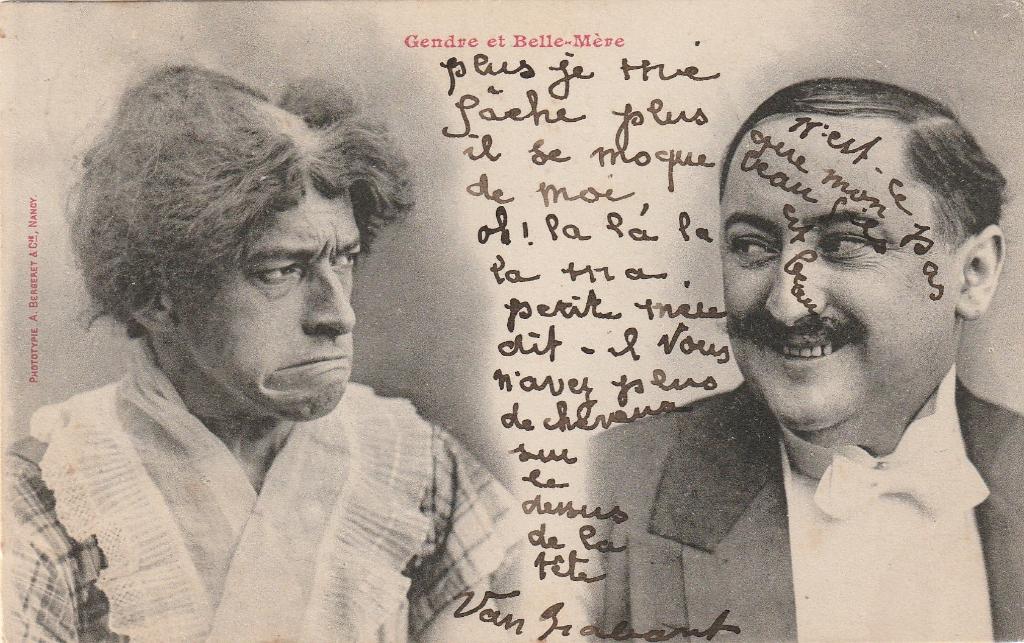 Gendre et Belle-Mère
plus je me
fâche plus
il se moque
de moi
oh! la là la
la ma
petite mère
dit-il Vous
n'avez plus
de cheveux
sur
le
dessus
de la
tête
Van Brabant
N'est-ce pas
que mon
beau fils
est beau
PHOTOTYPIE A. BERGERET & Cie, NANCY.